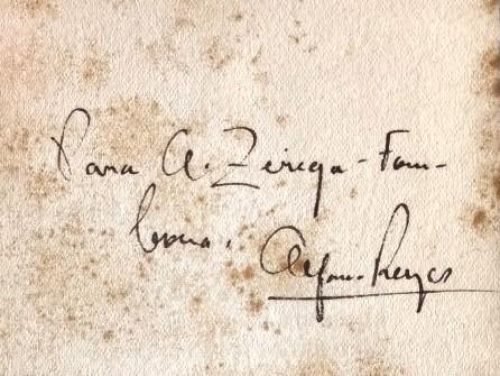 Para A. Zerega-Fom-
bona,
Alfonso Reyes